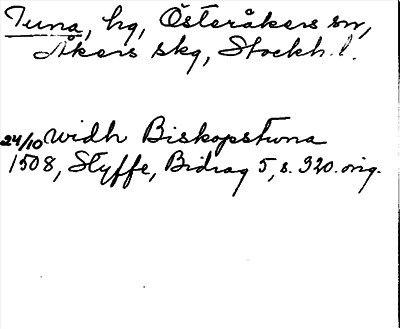 Tuna, hg, Österåkers sn,
Åkers skg, Stockh. l.
24/10 widh Biskopstuna
1508, Styffe, Bidrag 5, s. 320. orig.